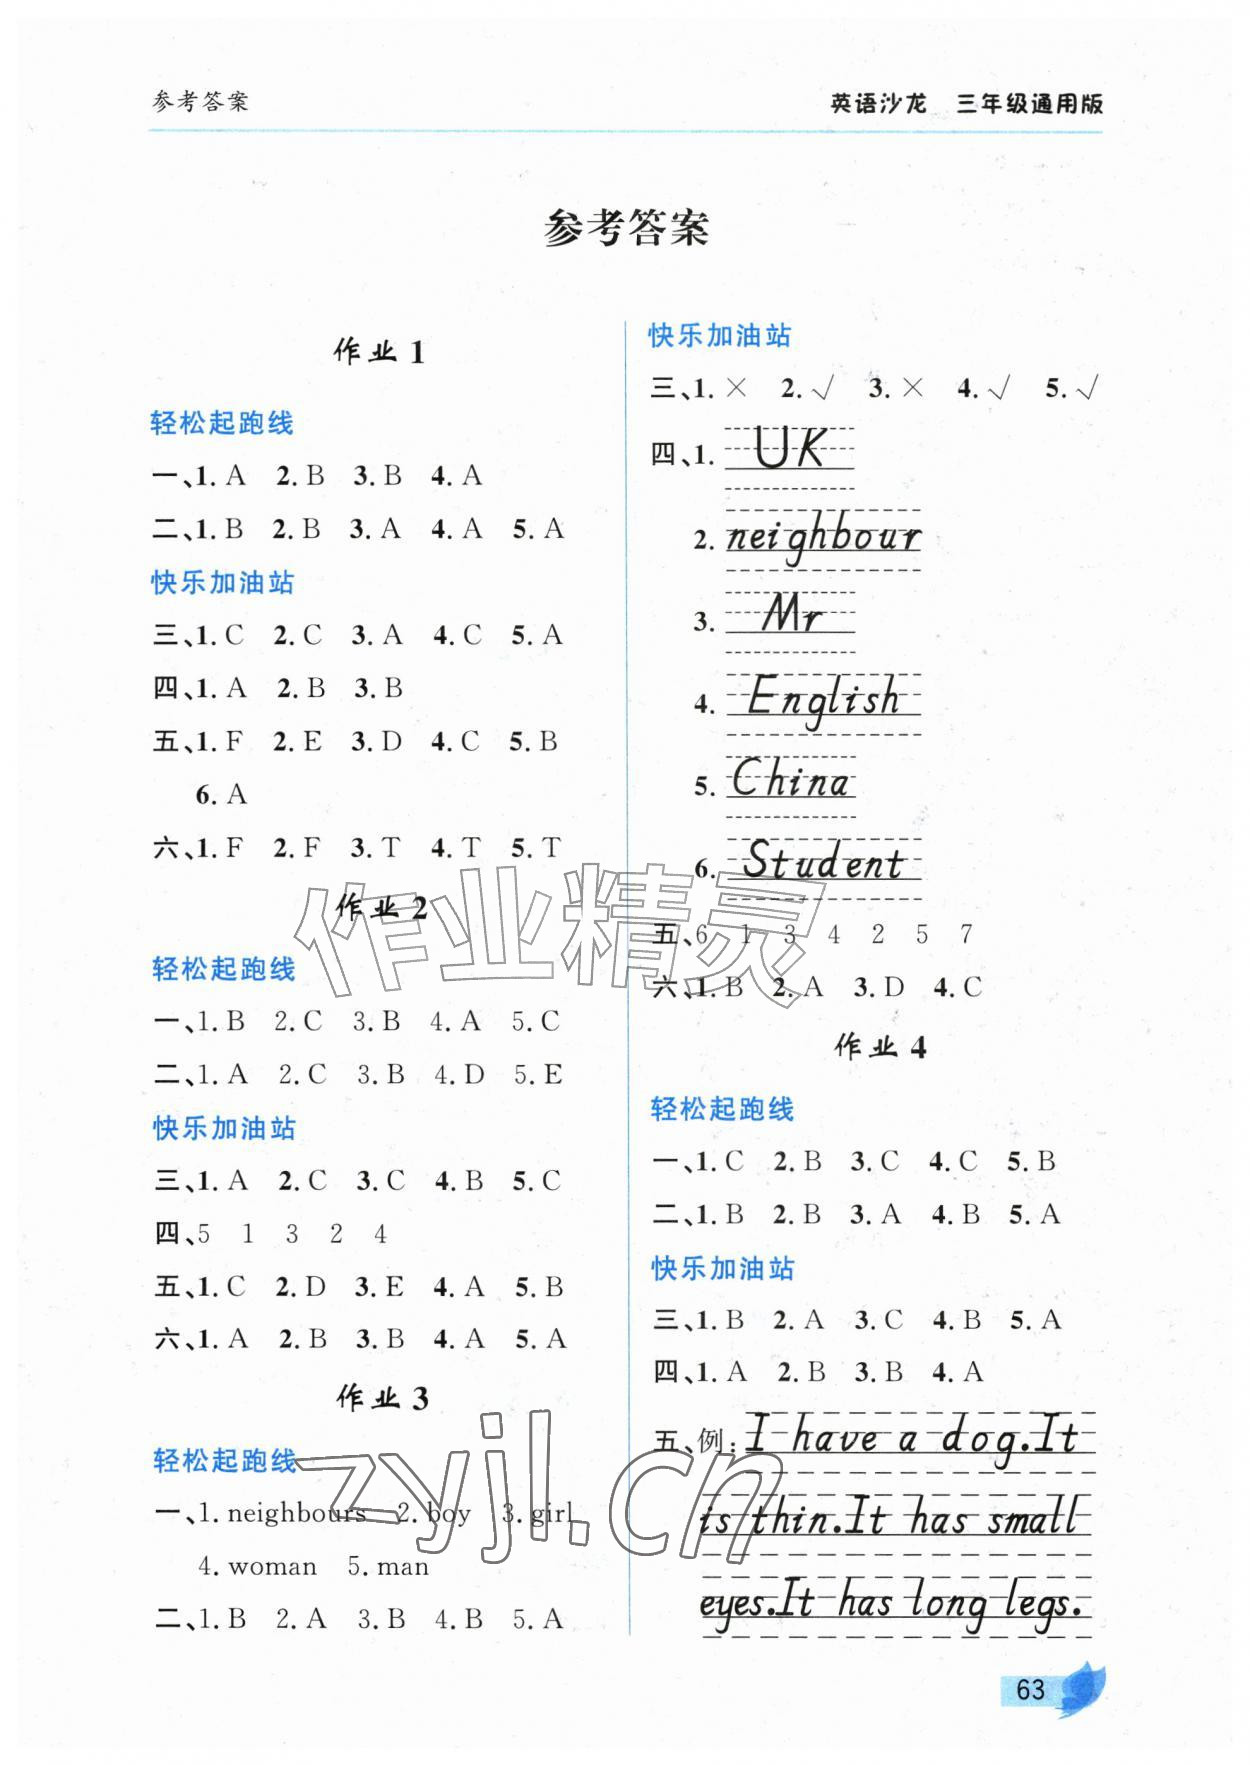 参考答案
英语沙龙 三年级通用版
参考答案
作业 1
轻松起跑线
一、1. A 2. B 3. B 4. A
二、1. B 2. B 3. A 4. A 5. A
快乐加油站
三、1. C 2. C 3. A 4. C 5. A
四、1. A 2. B 3. B
五、1. F 2. E 3. D 4. C 5. B
6. A
六、1. F 2. F 3. T 4. T 5. T
作业 2
轻松起跑线
一、1. B 2. C 3. B 4. A 5. C
二、1. A 2. C 3. B 4. D 5. E
快乐加油站
三、1. A 2. C 3. C 4. B 5. C
四、5 1 3 2 4
五、1. C 2. D 3. E 4. A 5. B
六、1. A 2. B 3. B 4. A 5. A
作业 3
轻松起跑线
一、1. neighbours 2. boy 3. girl
4. woman 5. man
二、1. B 2. A 3. B 4. B 5. A
快乐加油站
三、1. × 2. √ 3. × 4. √ 5. √
四、1. UK
2. neighbour
3. Mr
4. English
5. China
6. Student
五、6 1 3 4 2 5 7
六、1. B 2. A 3. D 4. C
作业 4
轻松起跑线
一、1. C 2. B 3. C 4. C 5. B
二、1. B 2. B 3. A 4. B 5. A
快乐加油站
三、1. B 2. A 3. C 4. B 5. A
四、1. A 2. B 3. B 4. A
五、例：I have a dog. It
is thin. It has small
eyes. It has long legs.
63
作业精灵
zyjl.cn